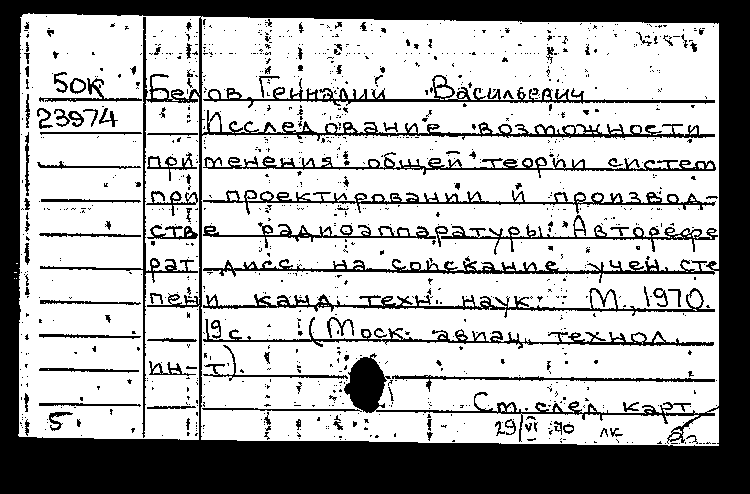 50К Белов, Геннадий Васильевич
23974 Исследование возможности
применения общей теории систем
при проектировании и производ-
стве радиоаппаратуры. Авторефе
рат дисс. на соискание учен. сте
пени канд. техн. наук. М., 1970.
19 с. (Моск. авиац. технол.
ин-т).
См. след. карт
5 29/VI 70 лк